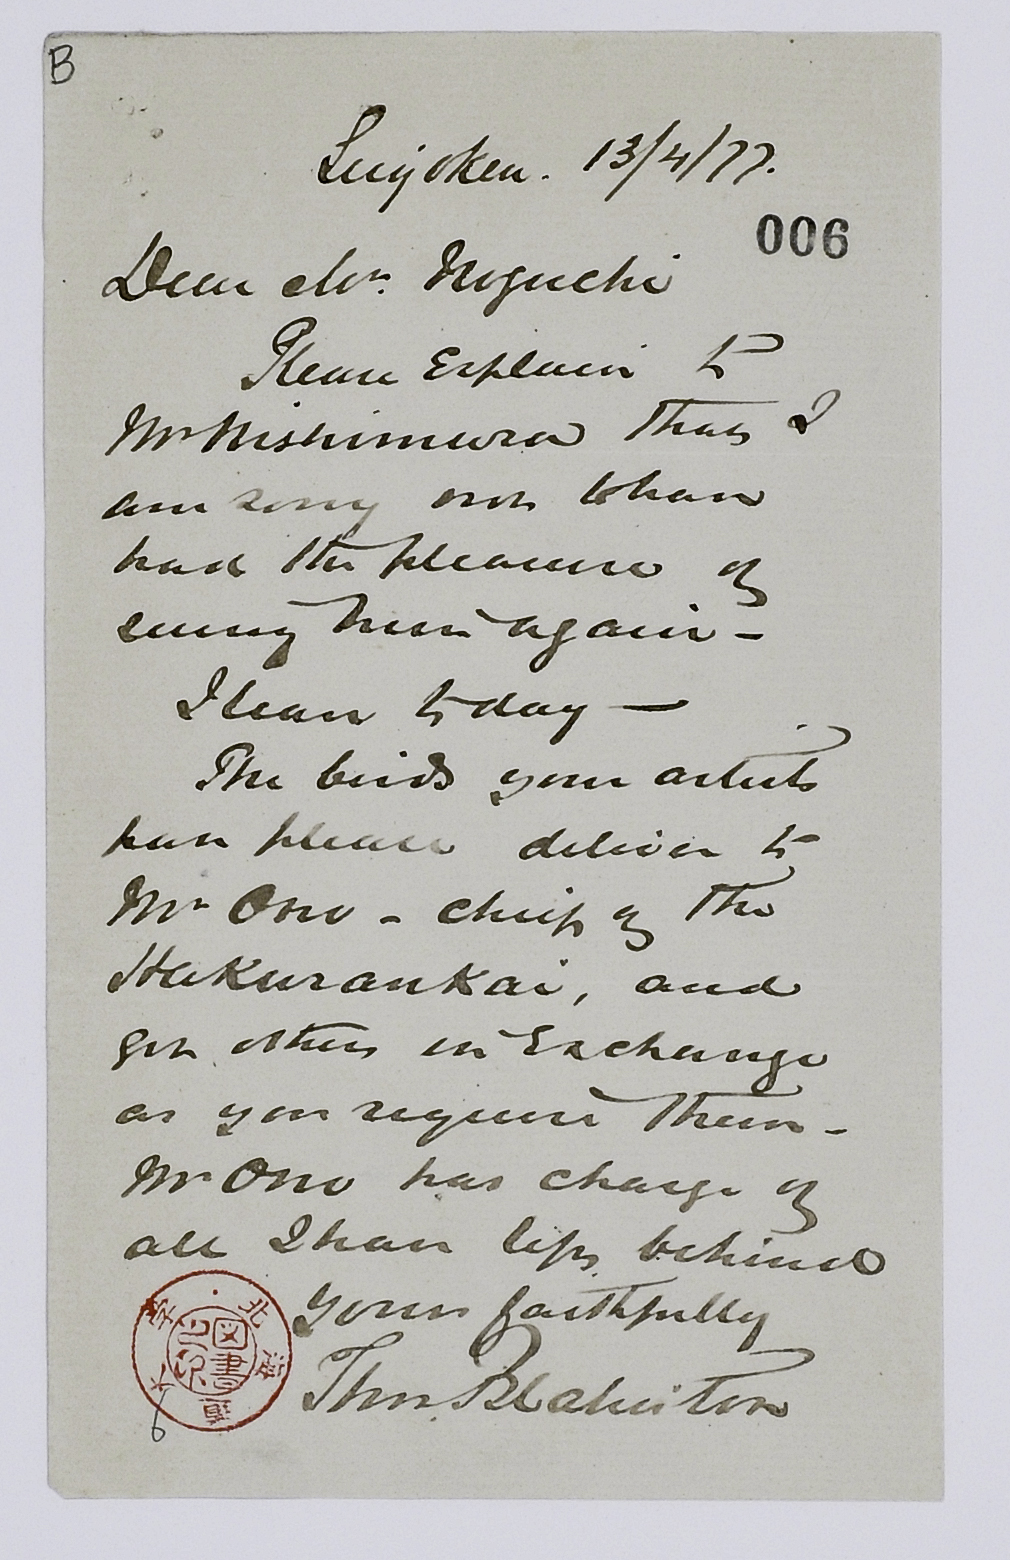 B
Seiyoken. 13/4/77.
006
Dear Mr. Noguchi
Please Explain to
Mr Nishimura that I
am sorry not to have
had the pleasure of
seeing him again -
I leave to day —
The birds your artists
have please deliver to
Mr Ono - chief of the
Hakurankai, and
get others in Exchange
as you require them -
Mr Ono has charge of
all I have left behind
Yours faithfully
Thos. Blakiston
北海道大学
図書
6